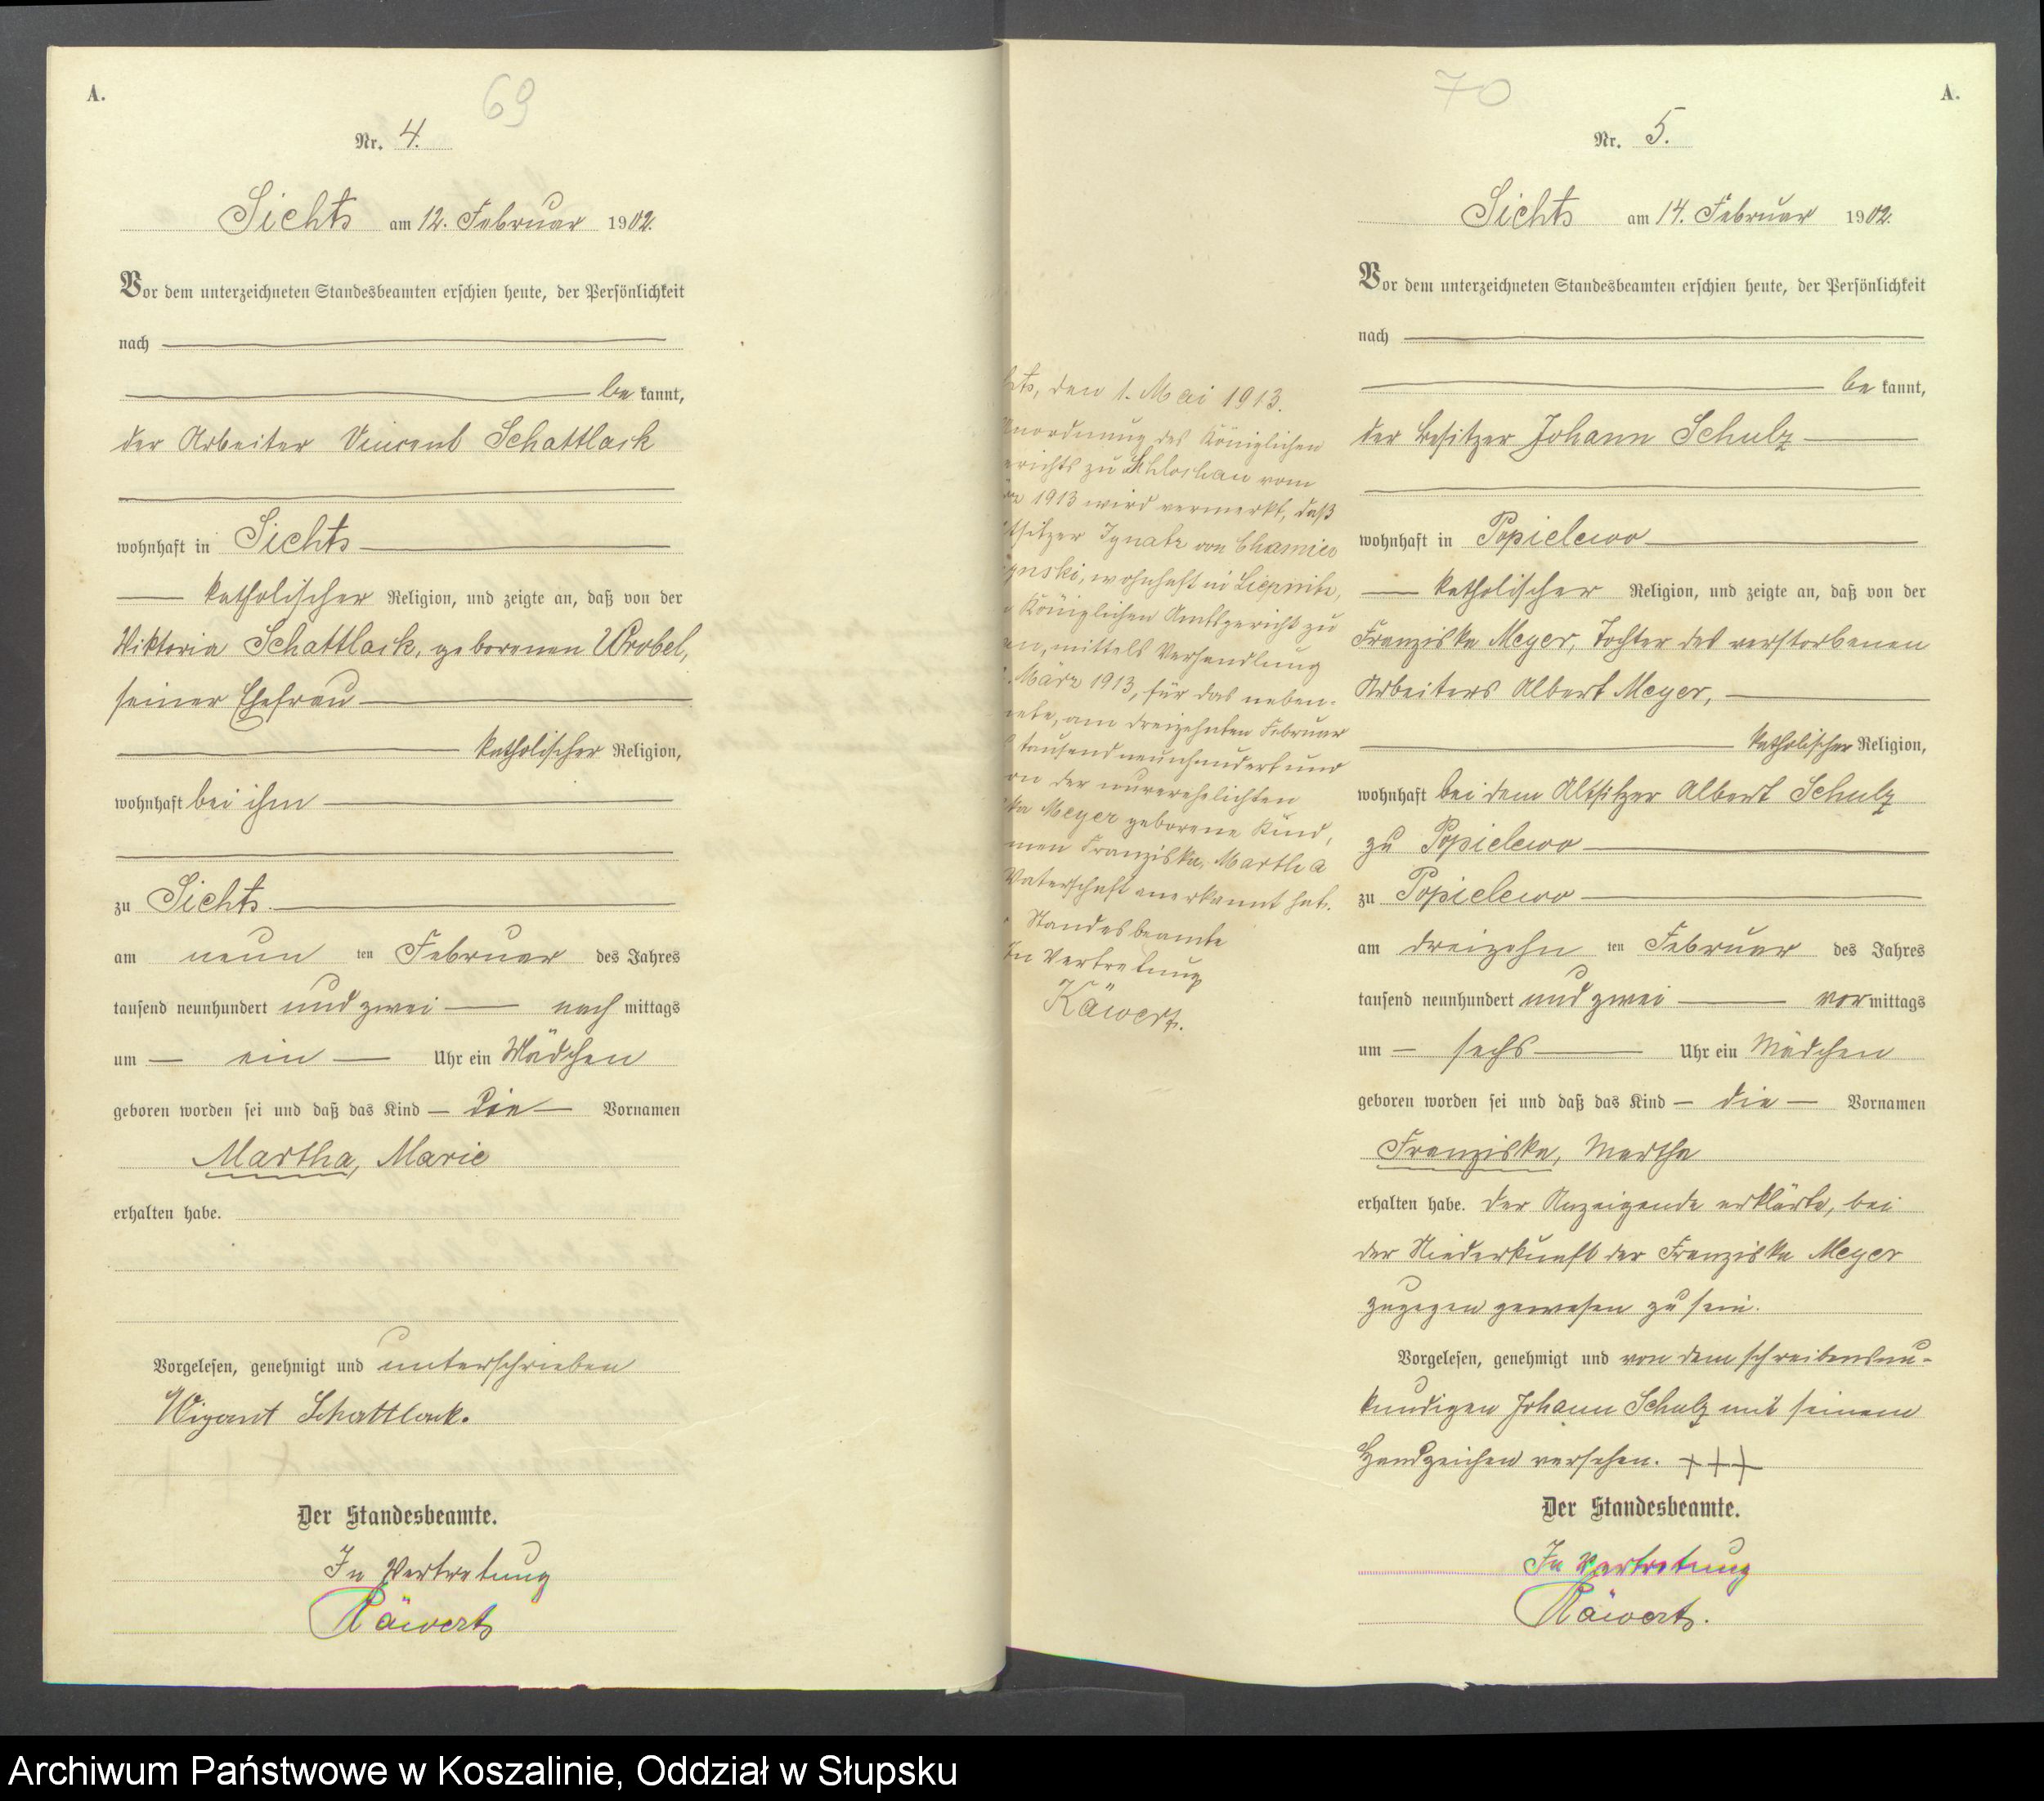 A.
69
Nr. 4.
Sichts am 12. Februar 1902.
Vor dem unterzeichneten Standesbeamten erschien heute, der Persönlichkeit
nach
be kannt,
der Arbeiter Vincent Schattlack
wohnhaft in Sichts
katholischer Religion, und zeigte an, daß von der
Viktoria Schattlack, geborenen Wrobel,
seiner Ehefrau
katholischer Religion,
wohnhaft bei ihm
zu Sichts
am neun ten Februar des Jahres
tausend neunhundert und zwei nach mittags
um ein Uhr ein Mädchen
geboren worden sei und daß das Kind die Vornamen
Martha, Marie
erhalten habe.
Vorgelesen, genehmigt und unterschrieben
Wizant Schattlack.
Der Standesbeamte.
In Vertretung
Käwert
hts, den 1. Mai 1913.
Anordnung des Königlichen
erichts zu Schlochau vom
1913 wird vermerkt, daß
sitzer Ignatz von Chamier
inski, wohnhaft in Liepnitz,
Königlichen Amtsgericht zu
en, mittels Verhandlung
März 1913, für das neben-
nete, am dreizehnten Februar
tausend neunhundert und
on der unverehelichten
ka Meyer geborene Kind,
men Franziska, Martha
Vaterschaft anerkannt hat.
Standesbeamte
In Vertretung
Käwert.
70
A.
Nr. 5.
Sichts am 14. Februar 1902.
Vor dem unterzeichneten Standesbeamten erschien heute, der Persönlichkeit
nach
be kannt,
der Besitzer Johann Schulz
wohnhaft in Popielewo
katholischer Religion, und zeigte an, daß von der
Franziska Meyer, Tochter des verstorbenen
Arbeiters Albert Meyer,
katholischer Religion,
wohnhaft bei dem Altsitzer Albert Schulz
zu Popielewo
zu Popielewo
am dreizehn ten Februar des Jahres
tausend neunhundert und zwei vor mittags
um sechs Uhr ein Mädchen
geboren worden sei und daß das Kind die Vornamen
Franziska, Martha
erhalten habe. Der Anzeigende erklärte, bei
der Niederkunft der Franziska Meyer
zugegen gewesen zu sein.
Vorgelesen, genehmigt und von dem schreibensun-
kundigen Johann Schulz mit seinem
Handzeichen versehen. +++
Der Standesbeamte.
In Vertretung
Käwert.
Archiwum Państwowe w Koszalinie, Oddział w Słupsku